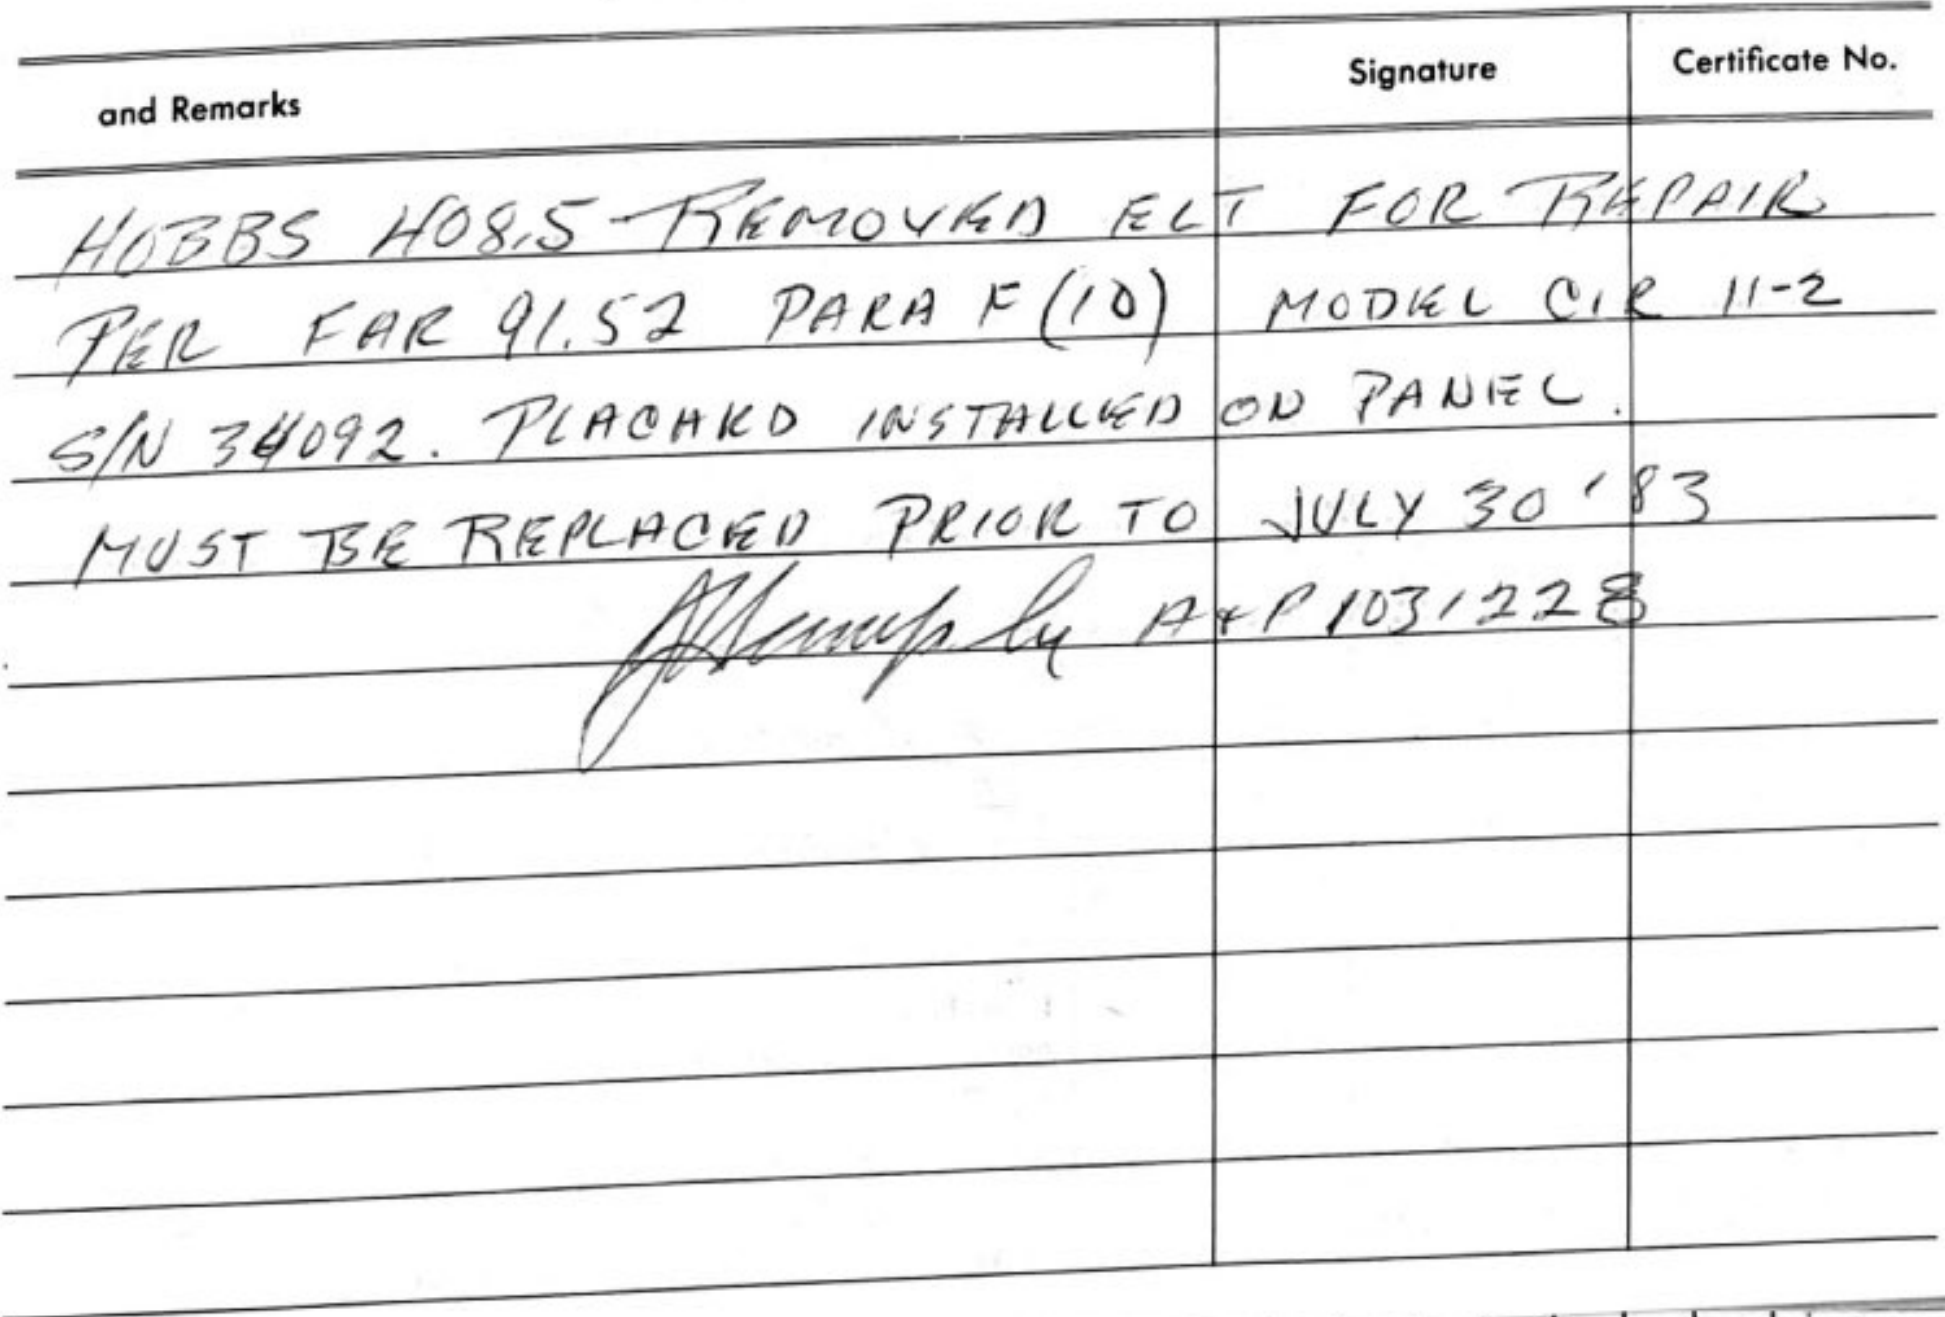 and Remarks Signature Certificate No.
HOBBS 408.5 - REMOVED ELT FOR REPAIR
PER FAR 91.52 PARA F (10) MODEL CIR 11-2
S/N 34092. PLACARD INSTALLED ON PANEL.
MUST BE REPLACED PRIOR TO JULY 30 '83
A+P 1031228